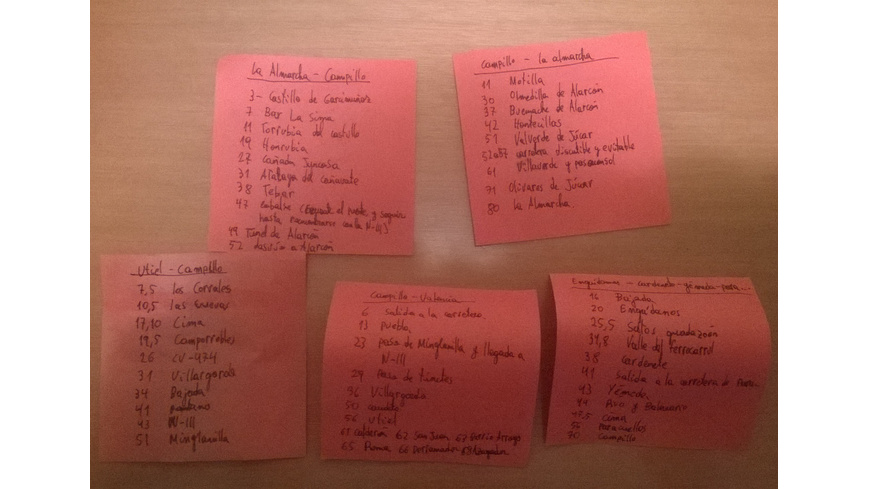 La Almarcha - Campillo
3- Castillo de Garcimuñoz
7 Bar La
11 Torrubia del castillo
19 Honrubia
27 Cañada Juncosa
31 Atalaya del cañavate
38 Tebar
47 embalse y seguir
hasta con la N-III)
49 Tunel de Alarcón
52 desvío a Alarcón
Campillo - la almarcha
11 Motilla
30 Olmedilla de Alarcón
37 Buenache de Alarcón
42 Hontecillas
51 Valverde de Júcar
carretera discutible y evitable
61 Villaverde y pasaconsol
71 Olivares de Júcar
80 La Almarcha
Utiel - Campillo
7,5 los Corrales
10,5 las Cuevas
17,10 Cima
19,5 Camporrobles
26 CV-474
31 Villargordo
34 Bajada
41 pantano
43 N-III
51 Minglanilla
Campillo - Valencia
6 salida a la carretera
13 Puebla
23 pasa de Minglanilla y llegada a
N-III
29 Pasa de túneles
Villargordo
caudete
56 Utiel
Calderón 62 San Juan 63 Barrio Arroyo
65 Roma 66 Derramador
Enguídanos - cardenete - yémeda - para...
16 Bajada
20 Enguídanos
25,5 Saltos
31,8 Valle del ferrocarril
38 Cardenete
41 Salida a la carretera de
43 Yémeda
44 y Balneario
cima
Paracuellos
70 Campillo